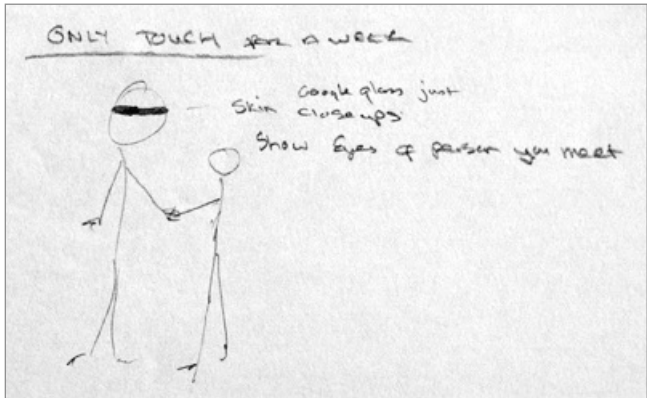 ONLY TOUCH for A WEEK
Google glass just
Skin closeups
Show Eyes of person you meet